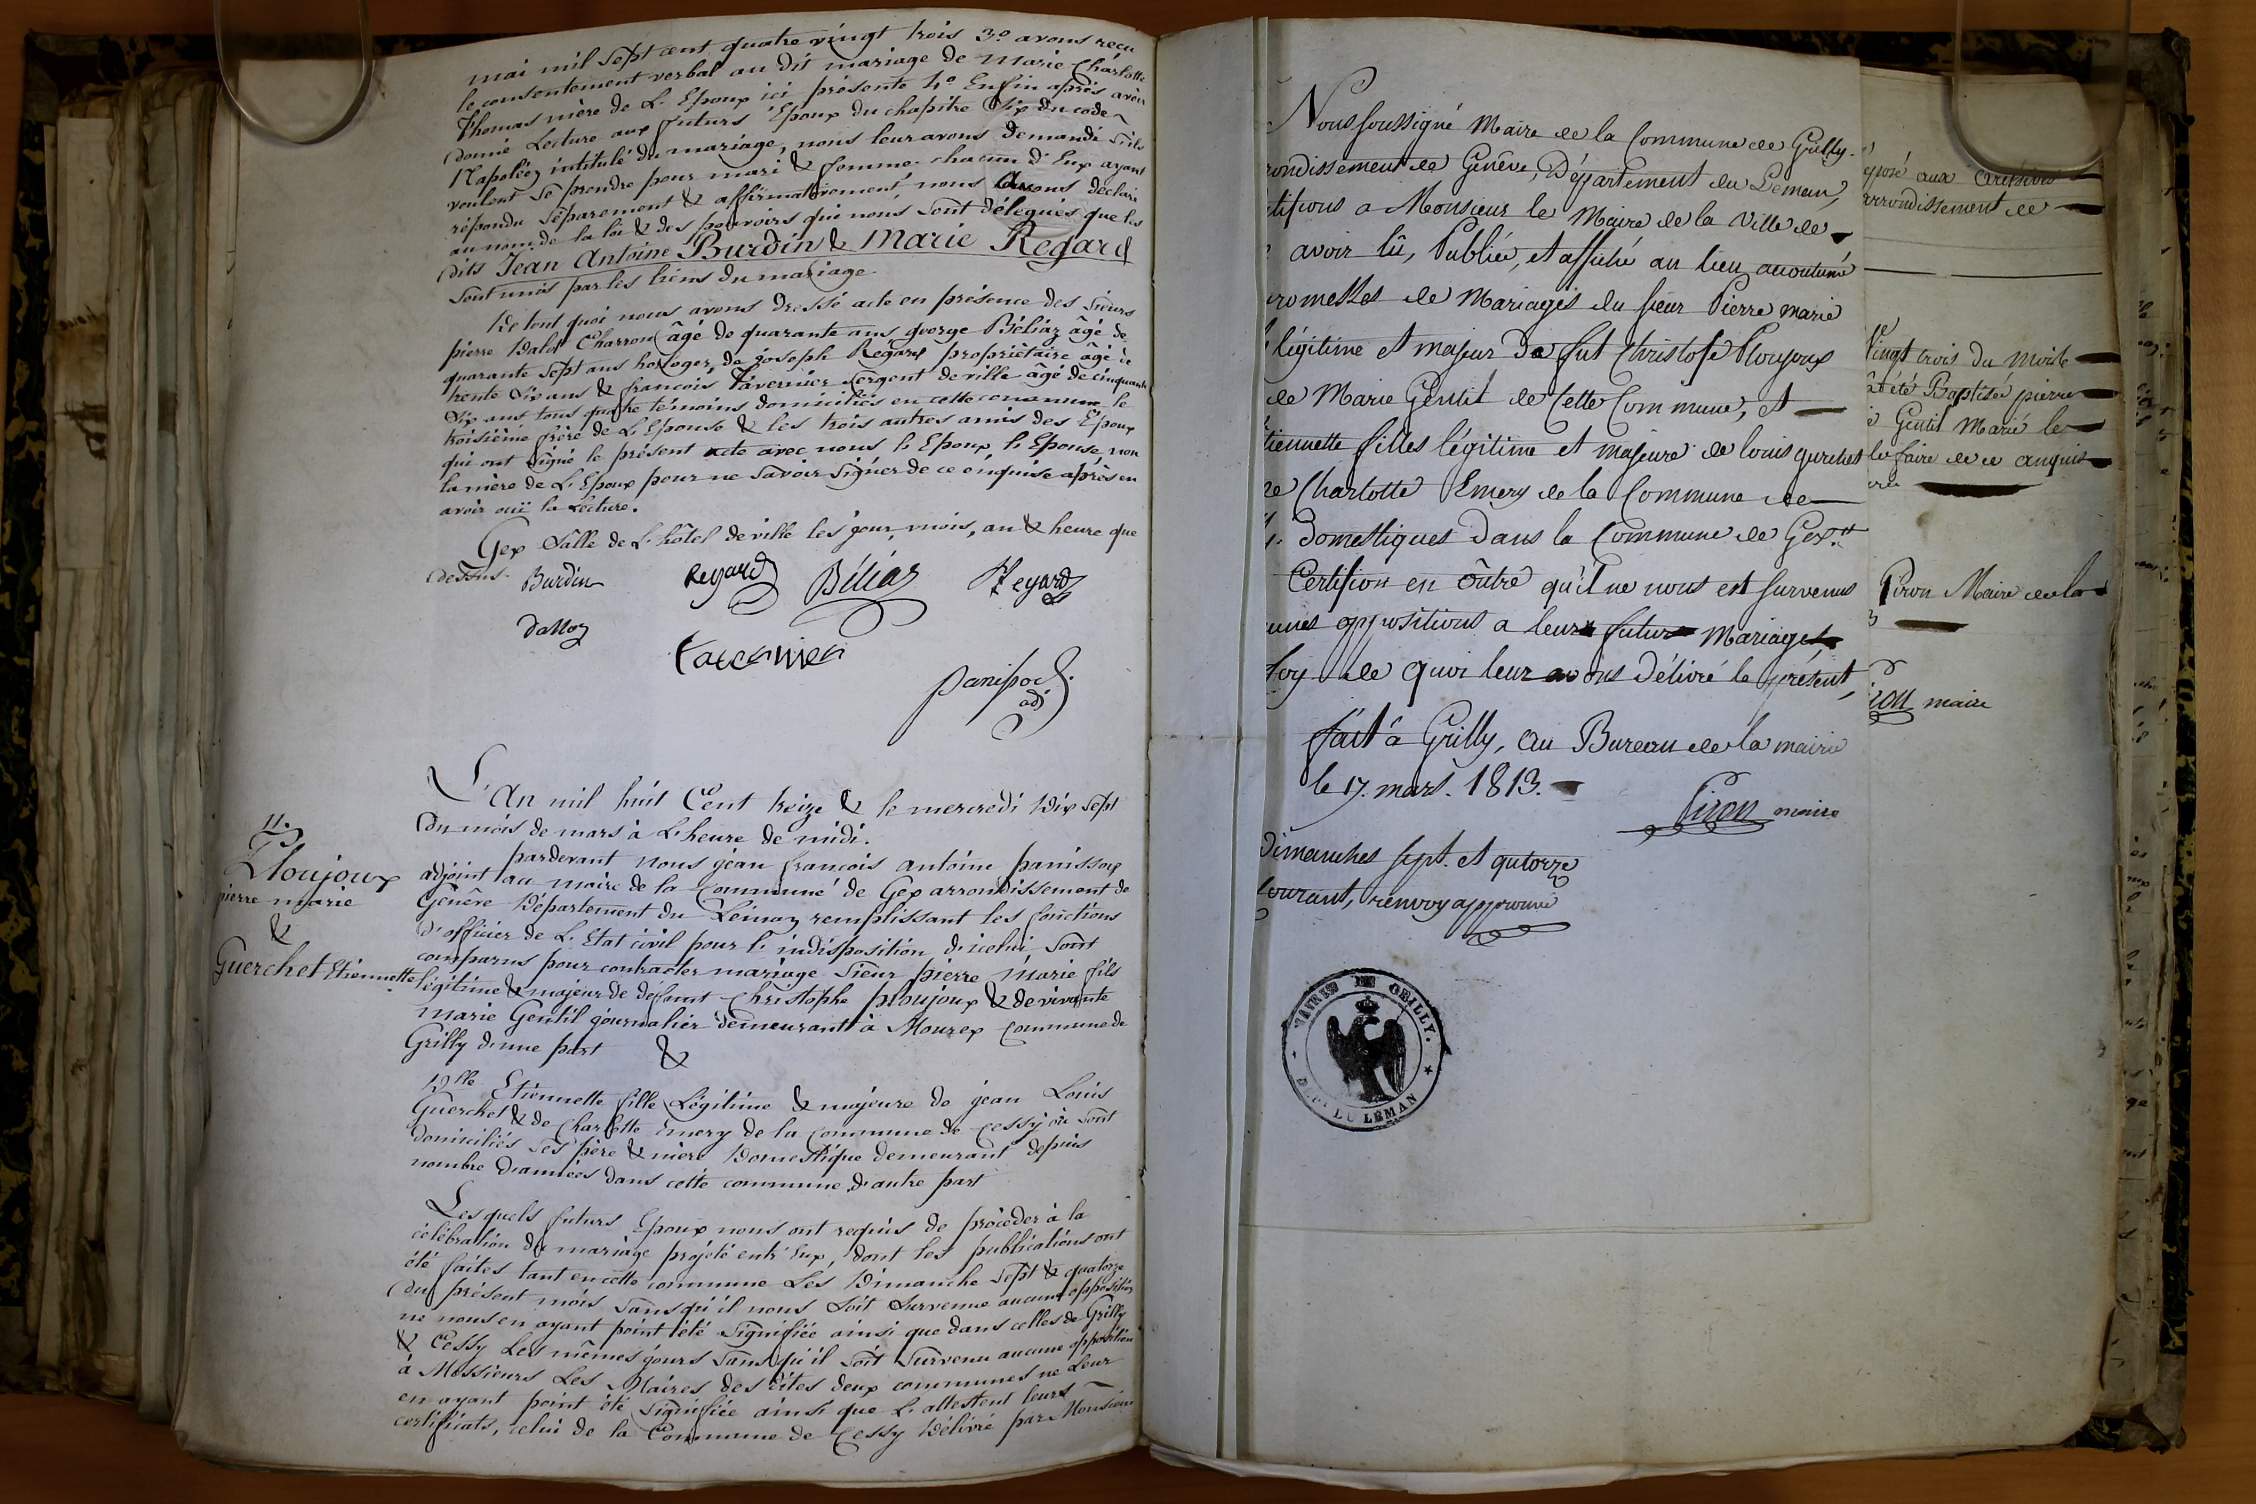 mai mil sept cent quatre vingt trois 3.o avons reçu
le consentement verbal au dit mariage de Marie Charlotte
Thomas mère de L'Epoux ici présente 4o Enfin après avoir
donné Lecture aux futurs Epoux du chapitre six du code
Napoléon intitulé du mariage, nous leur avons demandé s'ils
veulent se prendre pour mari & femme. chacun d'Eux ayant
répondu séparement & affirmativement, nous avons déclaré
au nom de la loi & des pouvoirs qui nous sont délegués que les
dits Jean Antoine Burdin & Marie Regard
sont unis par les liens du mariage.
De tout quoi nous avons dressé acte en présence des sieurs
pierre Charron âgé de quarante ans, george Béliaz âgé de
quarante sept ans horloger, de joseph Regard propriétaire âgé de
trente six ans & françois Tavernier sergent de ville âgé de cinquante
six ans tous quatre témoins domiciliés en cette commune le
troisième frère de L'Epouse & les trois autres amis des Epoux
qui ont signé le présent acte avec nous l'Epoux, l'Epouse, non
la mère de L'Epoux pour ne savoir signer de ce enquise après en
avoir ouï la Lecture.
Gex Salle de L'hôtel de ville les jour, mois, an & heure que
dessus.
Burdin Regard Béliaz Regard
Tavernier
Panissod
adj
L'An mil huit Cent treize & le mercredi Dix sept
du mois de mars à L'heure de midi.
11.
Ploujoux
pierre marie
&
Guerchet Etiennette
pardevant nous jean françois antoine panissod
adjoint au maire de la Commune de Gex arrondissement de
Genêve Département du Léman remplissant les fonctions
d'officier de L'Etat civil pour l'indisposition d'icelui, sont
comparus pour contracter mariage sieur pierre Marie fils
légitime & majeur de deffunt Christophe ploujoux & de vivante
marie Gentil journalier demeurant à Mourex Commune de
Grilly d'une part &
Dlle Etiennette fille Légitime & majeure de jean Louis
Guerchet & de Charlotte émery de la Commune de Cessy où sont
domiciliés ses père & mère Domestique demeurant depuis
nombre d'années dans cette commune d'autre part
Lesquels futurs Epoux nous ont requis de procéder à la
célébration du mariage projeté entr'Eux, dont les publications ont
été faites tant en cette commune Les Dimanche sept & quatorze
du présent mois sans qu'il nous soit survenue aucune opposition
ne nous en ayant point été signifiée ainsi que dans celles de Grilly
& Cessy Les mêmes jours sans qu'il soit survenu aucune opposition
à Messieurs Les Maires des dites deux communes ne Leur
en ayant point été signifiée ainsi que L'attestent leurs
certificats, celui de la Commune de Cessy Délivré par Monsieur
Nous soussigné Maire de la Commune de Grilly
rondissement de Genêve, Département du Leman,
tifions a Monsieur le Maire de la Ville de
avoir lû, Publiée, et affiché au lieu accoutumé
romesses de Mariages du sieur Pierre marie
légitime et majeur De fut Christofe Ploujoux
de Marie Gentil de Cette Commune, et
tiennette filles légitime et majeure de louis gurchet
Charlotte Emery de la Commune de
Domestiques Dans la Commune de Gex.
Certifion en outre qu'il ne nous est survenus
unes oppositions a leurs futurs Mariages,
foy de quoi leur avons Délivré le présent,
fait à Grilly, au Bureau de la mairie
le 17. mars. 1813.
Piron maire
Dimanches sept. et qutorze
Courant, renvoy approuvé
MAIRIE DE GRILLY.
DEPt DU LEMAN
posé aux archives
arrondissement de
Vingt trois du mois
a été Baptisé pierre
Gentil Marié le
le faire de ce enquis
Piron Maire de la
ron maire